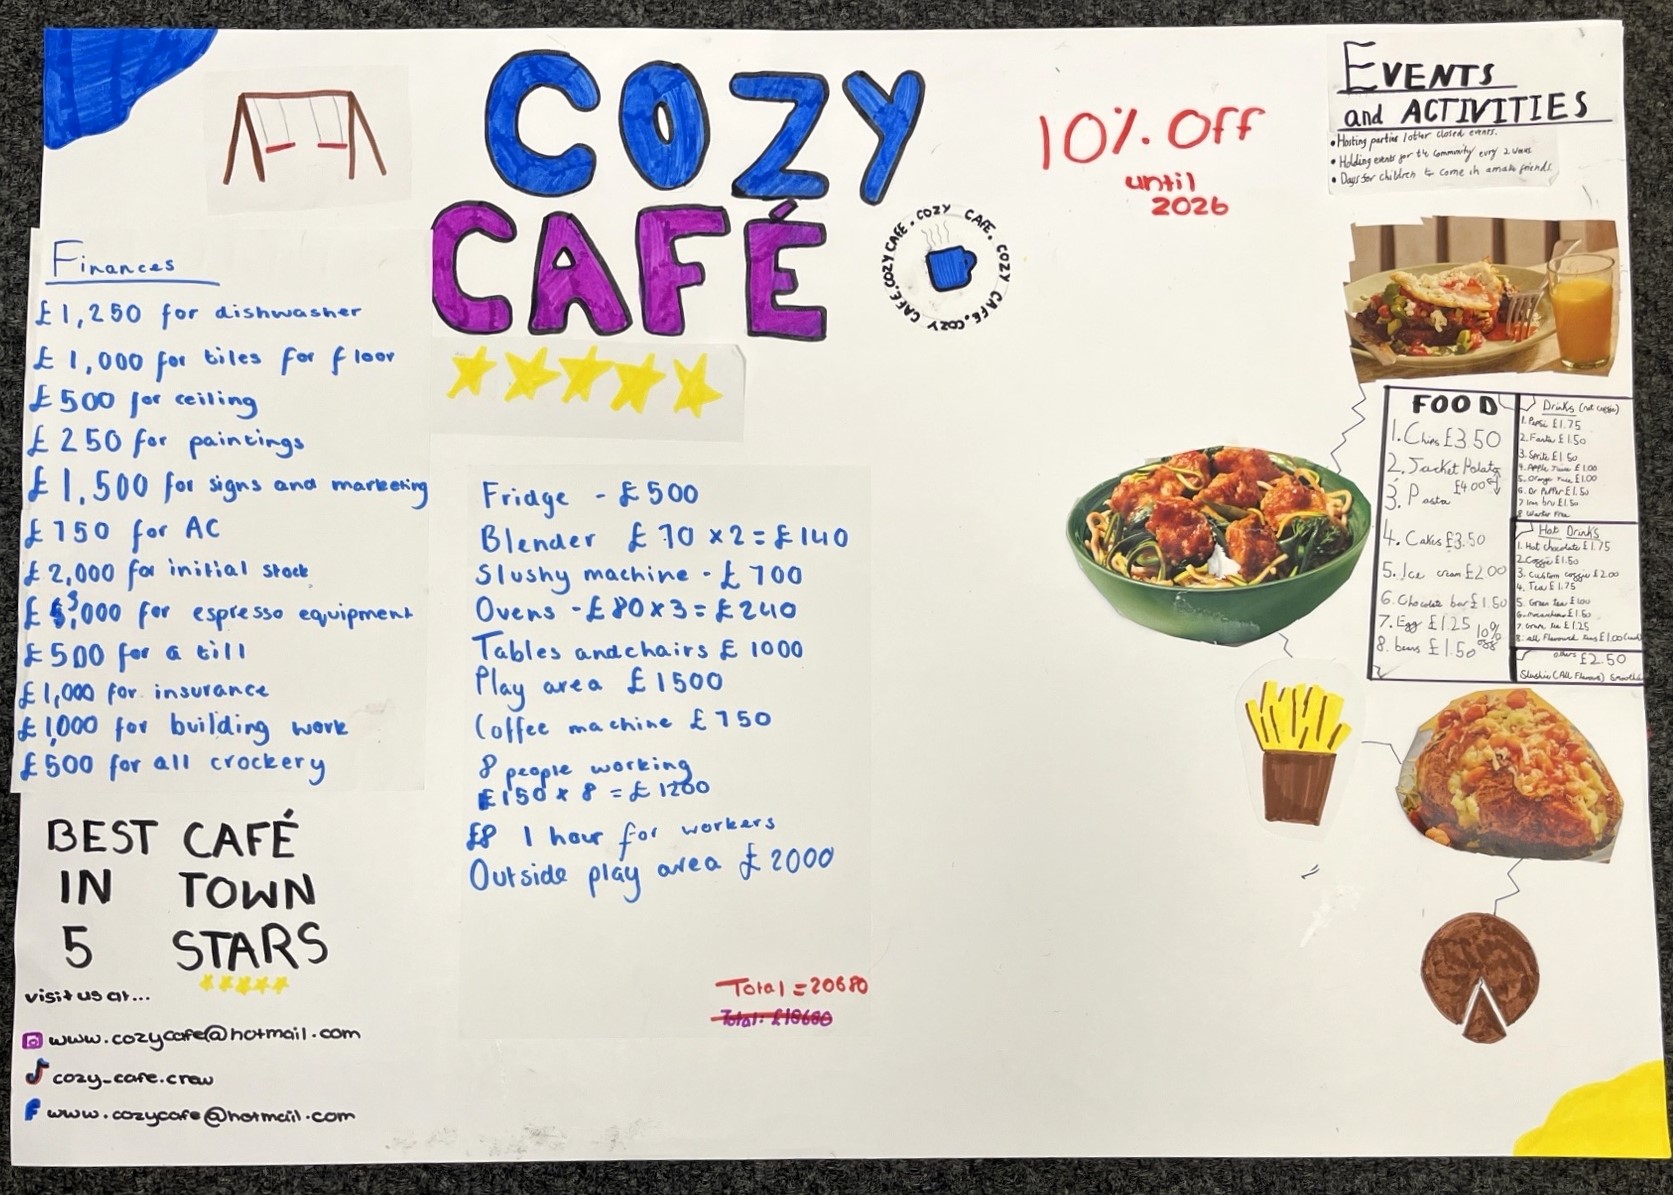 COZY
CAFÉ
COZY CAFE. COZY CAFE. COZY CAFE. COZY CAFE.
10% Off
until
2026
EVENTS
and ACTIVITIES
• Hosting parties / other closed events.
• Holding events for the community every 2 weeks
• Days for children to come in & make friends.
Finances
£1,250 for dishwasher
£1,000 for tiles for floor
£500 for ceiling
£250 for paintings
£1,500 for signs and marketing
£750 for AC
£2,000 for initial stock
£3,000 for espresso equipment
£500 for a till
£1,000 for insurance
£1,000 for building work
£500 for all crockery
BEST CAFÉ
IN TOWN
5 STARS
visit us at...
www.cozycafe@hotmail.com
cozy_cafe.crew
www.cozycafe@hotmail.com
Fridge - £500
Blender £70 x2 = £140
Slushy machine - £700
Ovens - £80 x 3 = £240
Tables and chairs £1000
Play area £1500
Coffee machine £750
8 people working
£150 x 8 = £1200
£8 1 hour for workers
Outside play area £2000
Total = 20680
Total: £18680
FOOD
1. Chips £3.50
2. Jacket Potato
3. Pasta £4.00
4. Cakes £3.50
5. Ice cream £2.00
6. Chocolate bar £1.50
7. Egg £1.25
8. beans £1.50
10% off
Drinks (not coffee)
1. Pepsi £1.75
2. Fanta £1.50
3. Sprite £1.50
4. Apple Juice £1.00
5. Orange Juice £1.00
6. Dr Pepper £1.50
7. Irn bru £1.50
8. Water Free
Hot Drinks
1. Hot chocolate £1.75
2. Coffee £1.50
3. Custom coffee £2.00
4. Tea £1.75
5. Green Tea £1.00
7. £1.25
8. all Flavoured teas £1.00
others £2.50
Slushie (All Flavours)